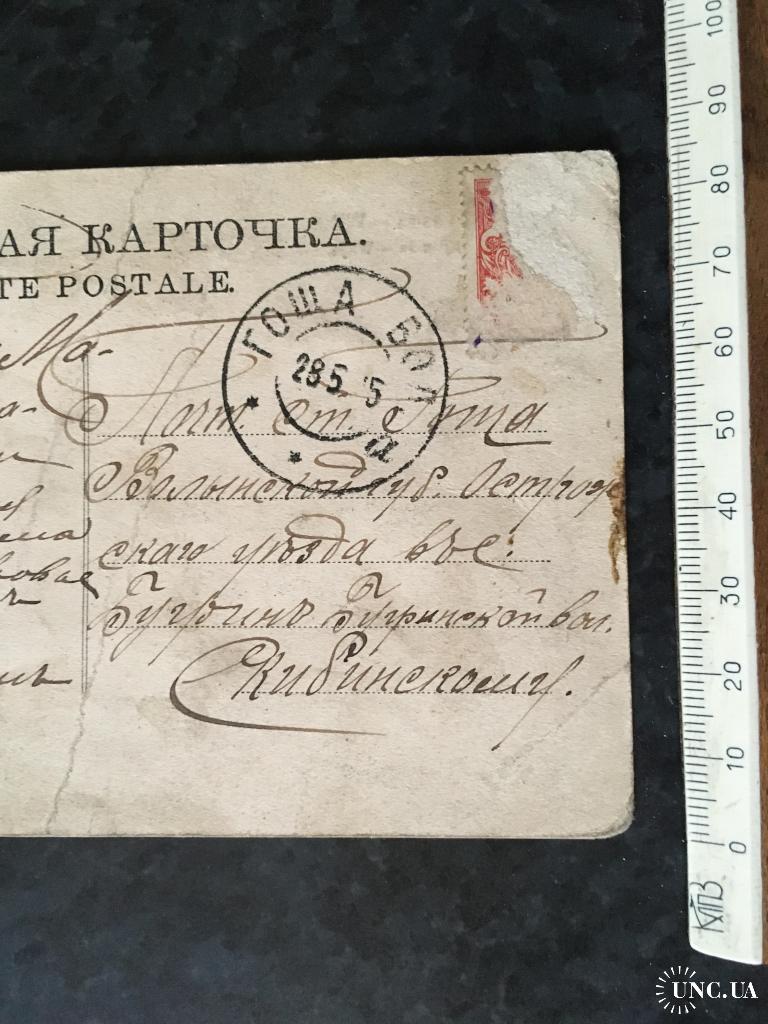 АЯ КАРТОЧКА.
TE POSTALE.
ГОША ВОЛ
28 5 15
а
Ма-
а-
Почт. От. Гоща
Волынской губ. Острож
скаго уѣзда въ с.
Бугринъ Бугринской вол.
Скибинскому.
100
90
80
70
60
50
40
30
20
10
0
UNC.UA